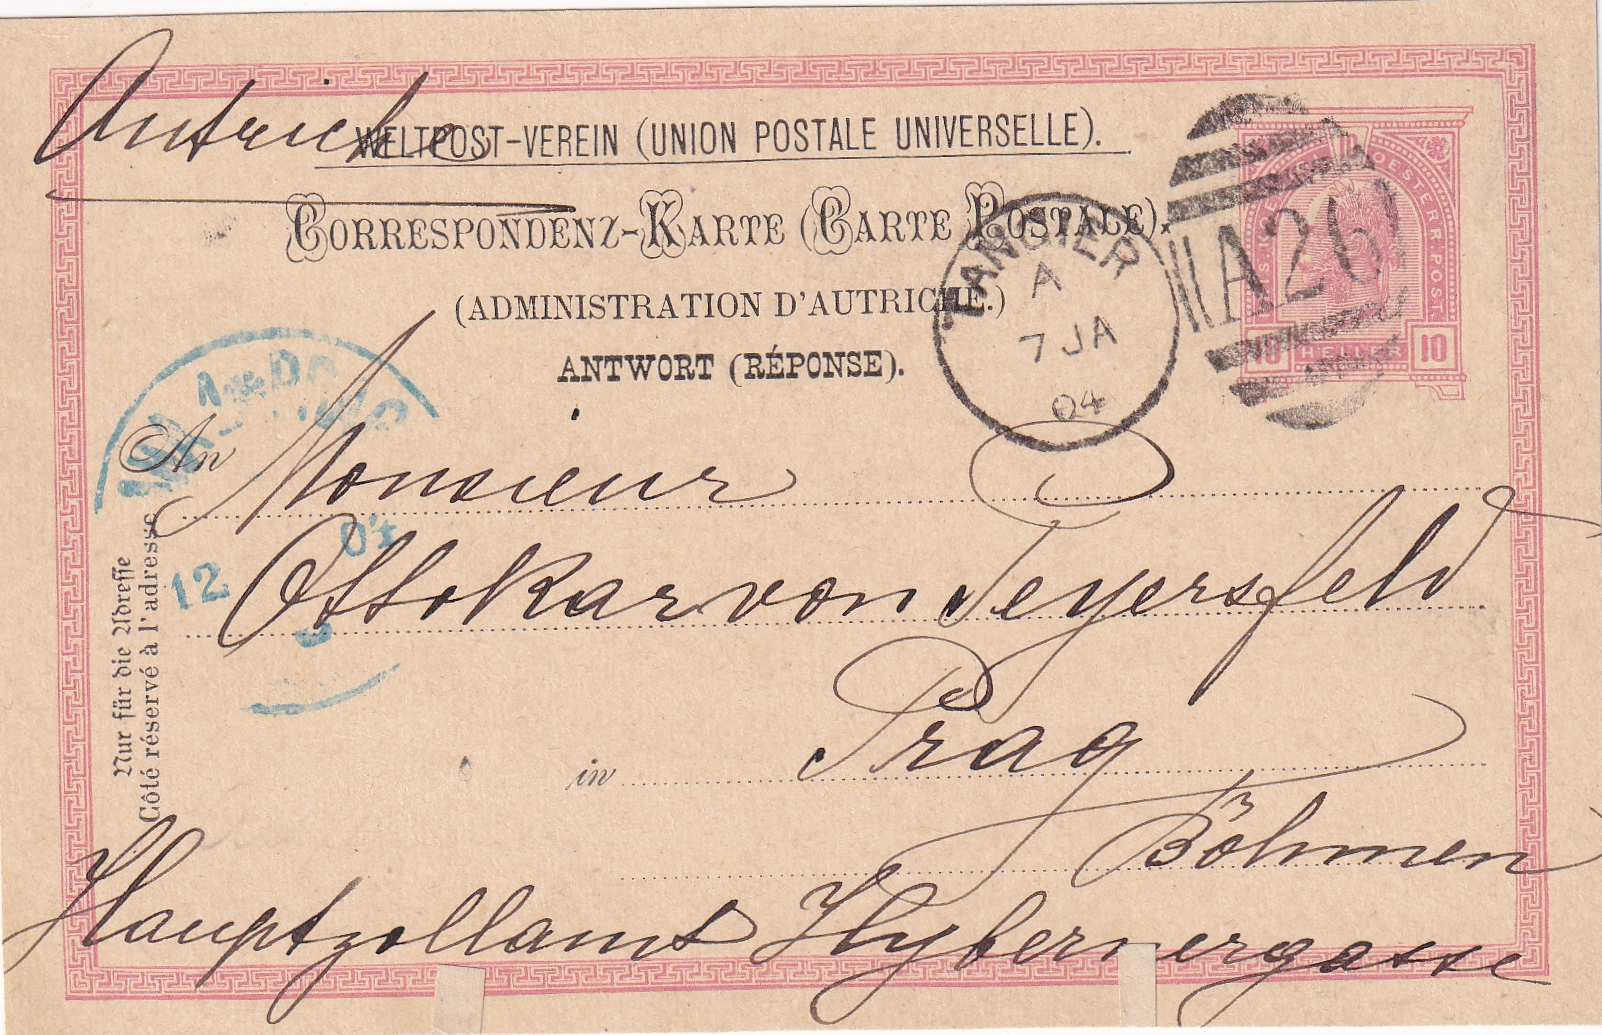 Autriche
WELTPOST-VEREIN (UNION POSTALE UNIVERSELLE).
CORRESPONDENZ-KARTE (CARTE POSTALE).
(ADMINISTRATION D'AUTRICHE.)
ANTWORT (RÉPONSE).
TANGIER
A
7 JA
04
A26
OESTERR. POST
10 HELLER 10
12
04
An Monsieur
Ottokar von Jeyersfeld
in Prag
Böhmen
Hauptzollamt Hybernergasse
Nur für die Adresse
Côté réservé à l'adresse